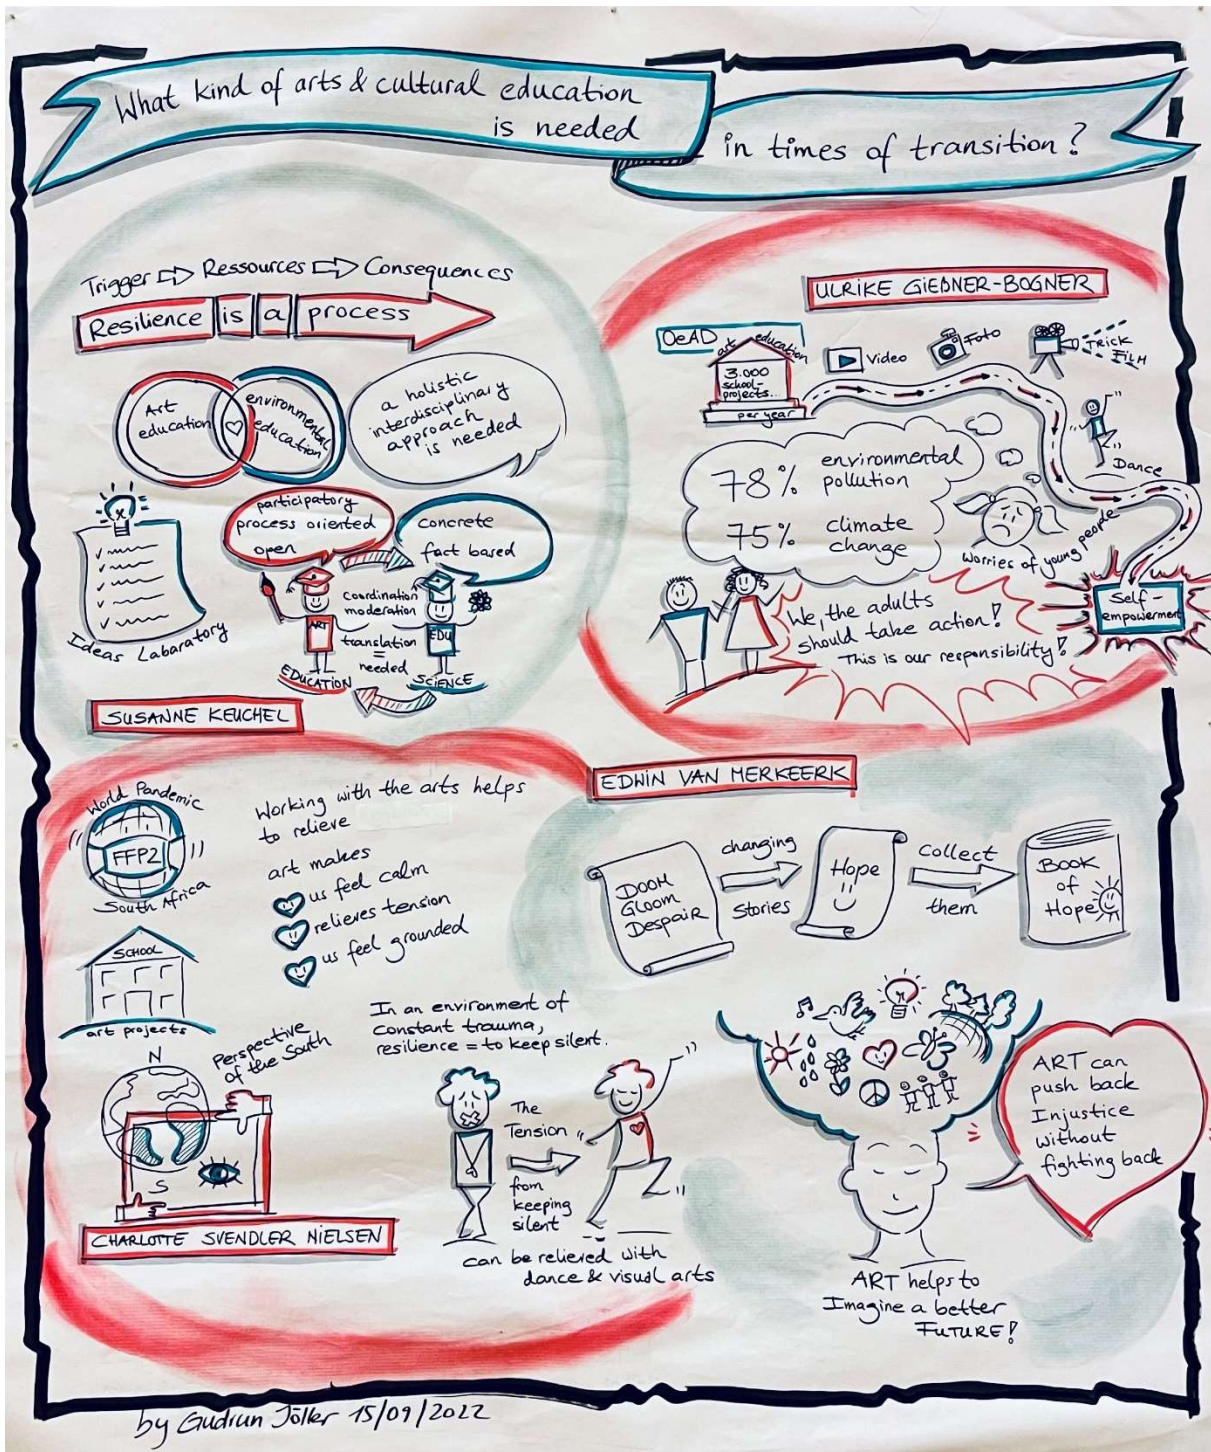 What kind of arts & cultural education
is needed
in times of transition?
Trigger ⇨ Ressources ⇨ Consequences
Resilience is a process
Art
education
environmental
education
a holistic
interdisciplinary
approach
is needed
participatory
process oriented
open
concrete
fact based
Coordination
moderation
translation
=
needed
ART
EDU
EDUCATION
SCIENCE
Ideas Labaratory
SUSANNE KEUCHEL
ULRIKE GIEßNER-BOGNER
OeAD
art education
3.000
school-
projects...
per year
Video
Foto
TRICK
FILM
Dance
78% environmental
pollution
75% climate
change
Worries of young people
Self-
empowerment
We, the adults
should take action!
This is our responsibility!
World Pandemic
FFP2
South Africa
SCHOOL
art projects
Working with the arts helps
to relieve
art makes
us feel calm
relieves tension
us feel grounded
Perspective
of the South
N
S
In an environment of
constant trauma,
resilience = to keep silent.
The
Tension
from
keeping
silent
can be relieved with
dance & visual arts
CHARLOTTE SVENDLER NIELSEN
EDWIN VAN MERKEERK
DOOM
GLOOM
Despair
changing
Stories
Hope
Collect
them
BOOK
of
Hope
ART can
push back
Injustice
without
fighting back
ART helps to
Imagine a better
FUTURE!
by Gudrun Jöller 15/09/2022